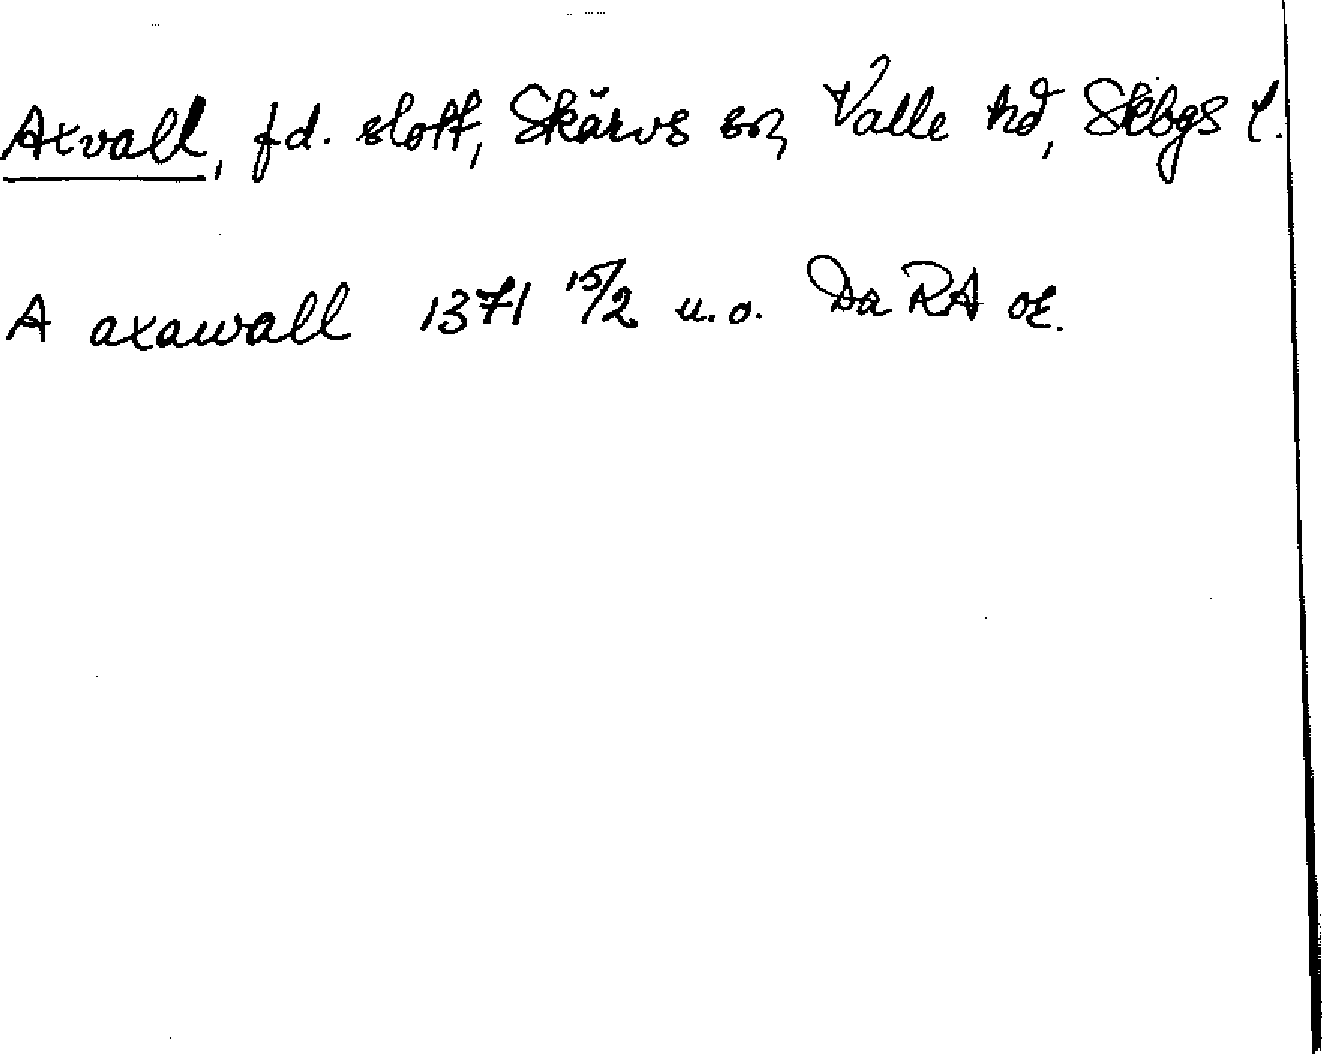 Axvall, fd. slott, Skärvs sn, Valle hd, Skbgs l.
A axawall 1371 15/2 u.o. Da RA or.